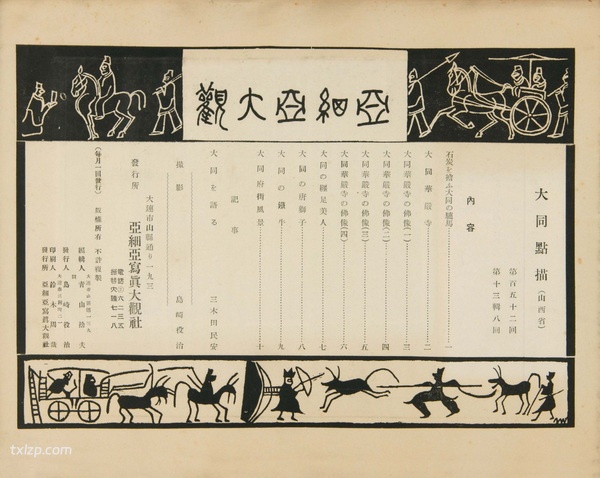 亞細亞大觀
大同點描(山西省)
第百五十二回
第十三輯八回
內容
石炭を捨ふ大同の驢馬 一
大同華嚴寺 二
大同華嚴寺の佛像(一) 三
大同華嚴寺の佛像(二) 四
大同華嚴寺の佛像(三) 五
大同華嚴寺の佛像(四) 六
大同の纏足美人 七
大同の唐獅子 八
大同の鐵牛 九
大同府街風景 十
記事
大同を語る 三木田民安
撮影 島崎役治
發行所
大連市山縣通り一九三
亞細亞寫眞大觀社
電話②六二三五
振替大連七一八
(每月一回發行)
版權所有 不許複製
發行人 島崎役治
印刷人 鈴木
發行所 亞細亞寫眞大觀社
txlzp.com